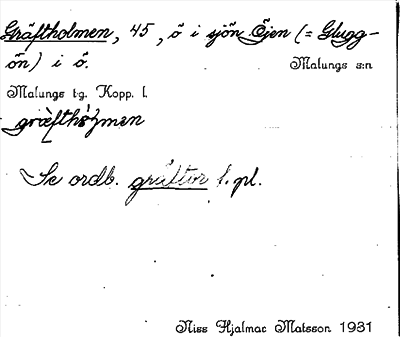 Gräftholmen, 45, ö i sjön Öjen (= Glugg-
ön) i ö.
Malungs s:n
Malungs t:g. Kopp. l.
Se ordb. gräftor f. pl.
Nils Hjalmar Matsson 1931